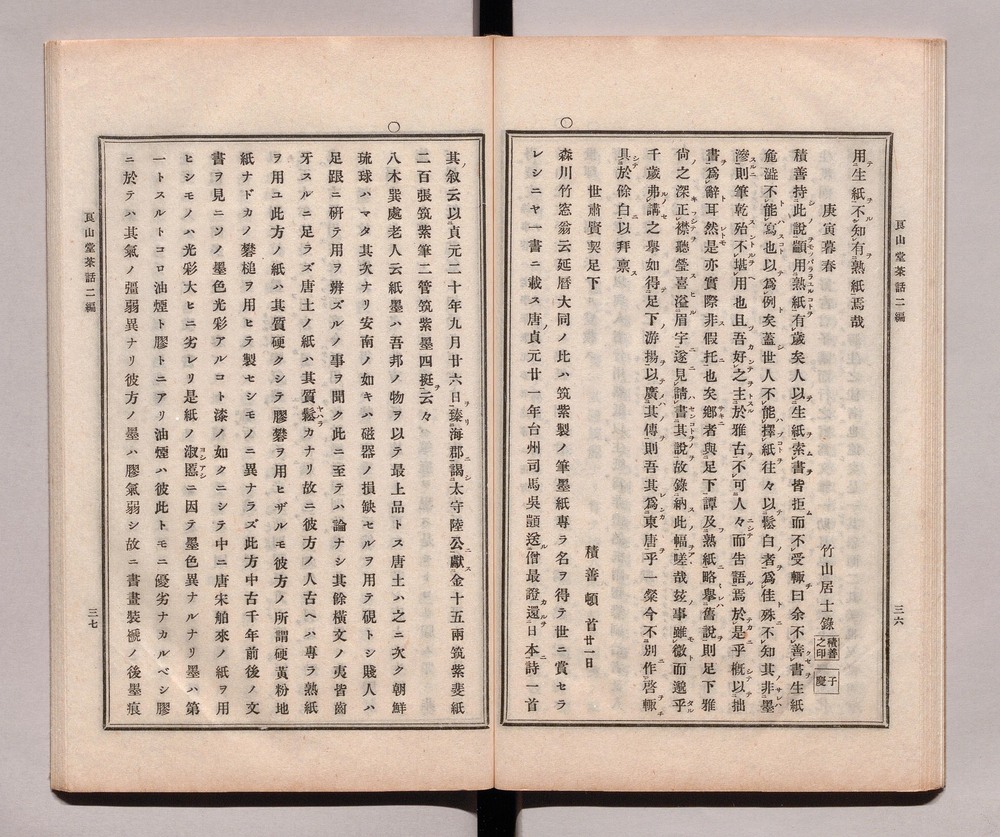 艮山堂茶話二編
三六
用生紙不知有熟紙焉哉
庚寅暮春
竹山居士錄
積善之印
子慶
積善持此說顓用熟紙有歲矣人以生紙索書皆拒而不受輙曰余不善書生紙
麁澁不能寫也以爲例矣蓋世人不能擇紙往々以鬆白者爲佳殊不知其非墨
滲則筆乾殆不堪用也且吾好之主於雅古不可人々而告語焉於是乎槪以拙
書爲辭耳然是亦實際非假托也矣鄉者與足下譚及熟紙略擧舊說則足下雅
尙之深正襟聽瑩喜溢眉宇遂見請書其說故錄納此幅嗟哉玆事雖微而邈乎
千歲弗講之擧如得足下游揚以廣其傳則吾其爲東唐乎一粲今不別作啓輙
具於餘白以拜禀
世肅賢契足下
積善頓首廿一日
森川竹窓翁云延曆大同ノ比ハ筑紫製ノ筆墨紙專ラ名ヲ得テ世ニ賞セラ
レシニヤ一書ニ載ス唐貞元廿一年台州司馬吳顗送僧最證還日本詩一首
其叙云以貞元二十年九月廿六日臻海郡謁太守陸公獻金十五兩筑紫斐紙
二百張筑紫筆二管筑紫墨四挺云々
八木巽處老人云紙墨ハ吾邦ノ物ヲ以テ最上品トス唐土ハ之ニ次ク朝鮮
琉球ハマタ其次ナリ安南ノ如キハ磁器ノ損缺セルヲ用テ硯トシ賤人ハ
足跟ニ硏テ用ヲ辨ズルノ事ヲ聞ク此ニ至テハ論ナシ其餘橫文ノ夷皆齒
牙スルニ足ラズ唐土ノ紙ハ其質鬆カナリ故ニ彼方ノ人古ヘハ專ラ熟紙
ヲ用ユ此方ノ紙ハ其質硬クシテ膠礬ヲ用ヒザルモ彼方ノ所謂硬黃粉地
紙ナドカノ礬槌ヲ用ヒテ製セシモノニ異ナラズ此方中古千年前後ノ文
書ヲ見ニソノ墨色光彩アルコト漆ノ如クニシテ中ニ唐宋舶來ノ紙ヲ用
ヒシモノハ光彩大ヒニ劣レリ是紙ノ淑慝ニ因テ墨色異ナルナリ墨ハ第
一トスルトコロ油煙ト膠トニアリ油煙ハ彼此トモニ優劣ナカルベシ膠
ニ於テハ其氣ノ彊弱異ナリ彼方ノ墨ハ膠氣弱シ故ニ書畫裝褫ノ後墨痕
艮山堂茶話二編
三七